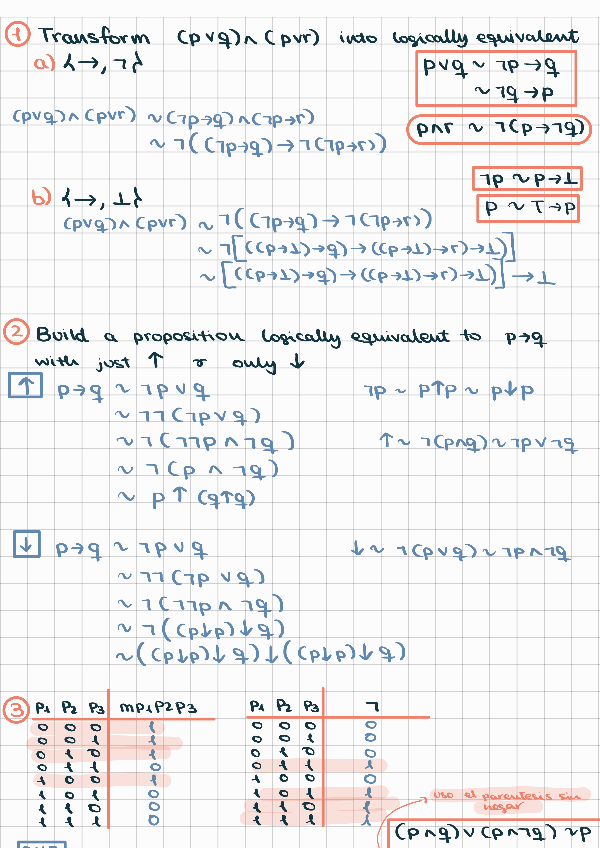 ① Transform (p∨q)∧(p∨r) into logically equivalent
a) {→, ¬}
p∨q ~ ¬p→q
~ ¬q→p
(p∨q)∧(p∨r) ~ (¬p→q)∧(¬p→r)
~ ¬((¬p→q)→¬(¬p→r))
p∧r ~ ¬(p→¬q)
¬p ~ p→⊥
p ~ T→p
b) {→, ⊥}
(p∨q)∧(p∨r) ~ ¬((¬p→q)→¬(¬p→r))
~ ¬[((p→⊥)→q)→((p→⊥)→r)→⊥)]
~ [((p→⊥)→q)→((p→⊥)→r)→⊥)]→⊥
② Build a proposition logically equivalent to p→q
with just ↑ or only ↓
↑ p→q ~ ¬p∨q
¬p ~ p↑p ~ p↓p
~ ¬¬(¬p∨q)
~ ¬(¬¬p∧¬q)
↑ ~ ¬(p∧q) ~ ¬p∨¬q
~ ¬(p∧¬q)
~ p↑(q↑q)
↓ p→q ~ ¬p∨q
↓ ~ ¬(p∨q) ~ ¬p∧¬q
~ ¬¬(¬p∨q)
~ ¬(¬¬p∧¬q)
~ ¬((p↓p)↓q)
~ ((p↓p)↓q)↓((p↓p)↓q)
③ p1 p2 p3 mp1p2p3
0 0 0 1
0 0 1 1
0 1 0 1
0 1 1 0
1 0 0 1
1 0 1 0
1 1 0 0
1 1 1 0
p1 p2 p3 ¬
0 0 0 0
0 0 1 0
0 1 0 0
0 1 1 1
1 0 0 0
1 0 1 1
1 1 0 1
1 1 1 1
uso el parentesis sin
negar
(p∧q)∨(p∧¬q) ~p